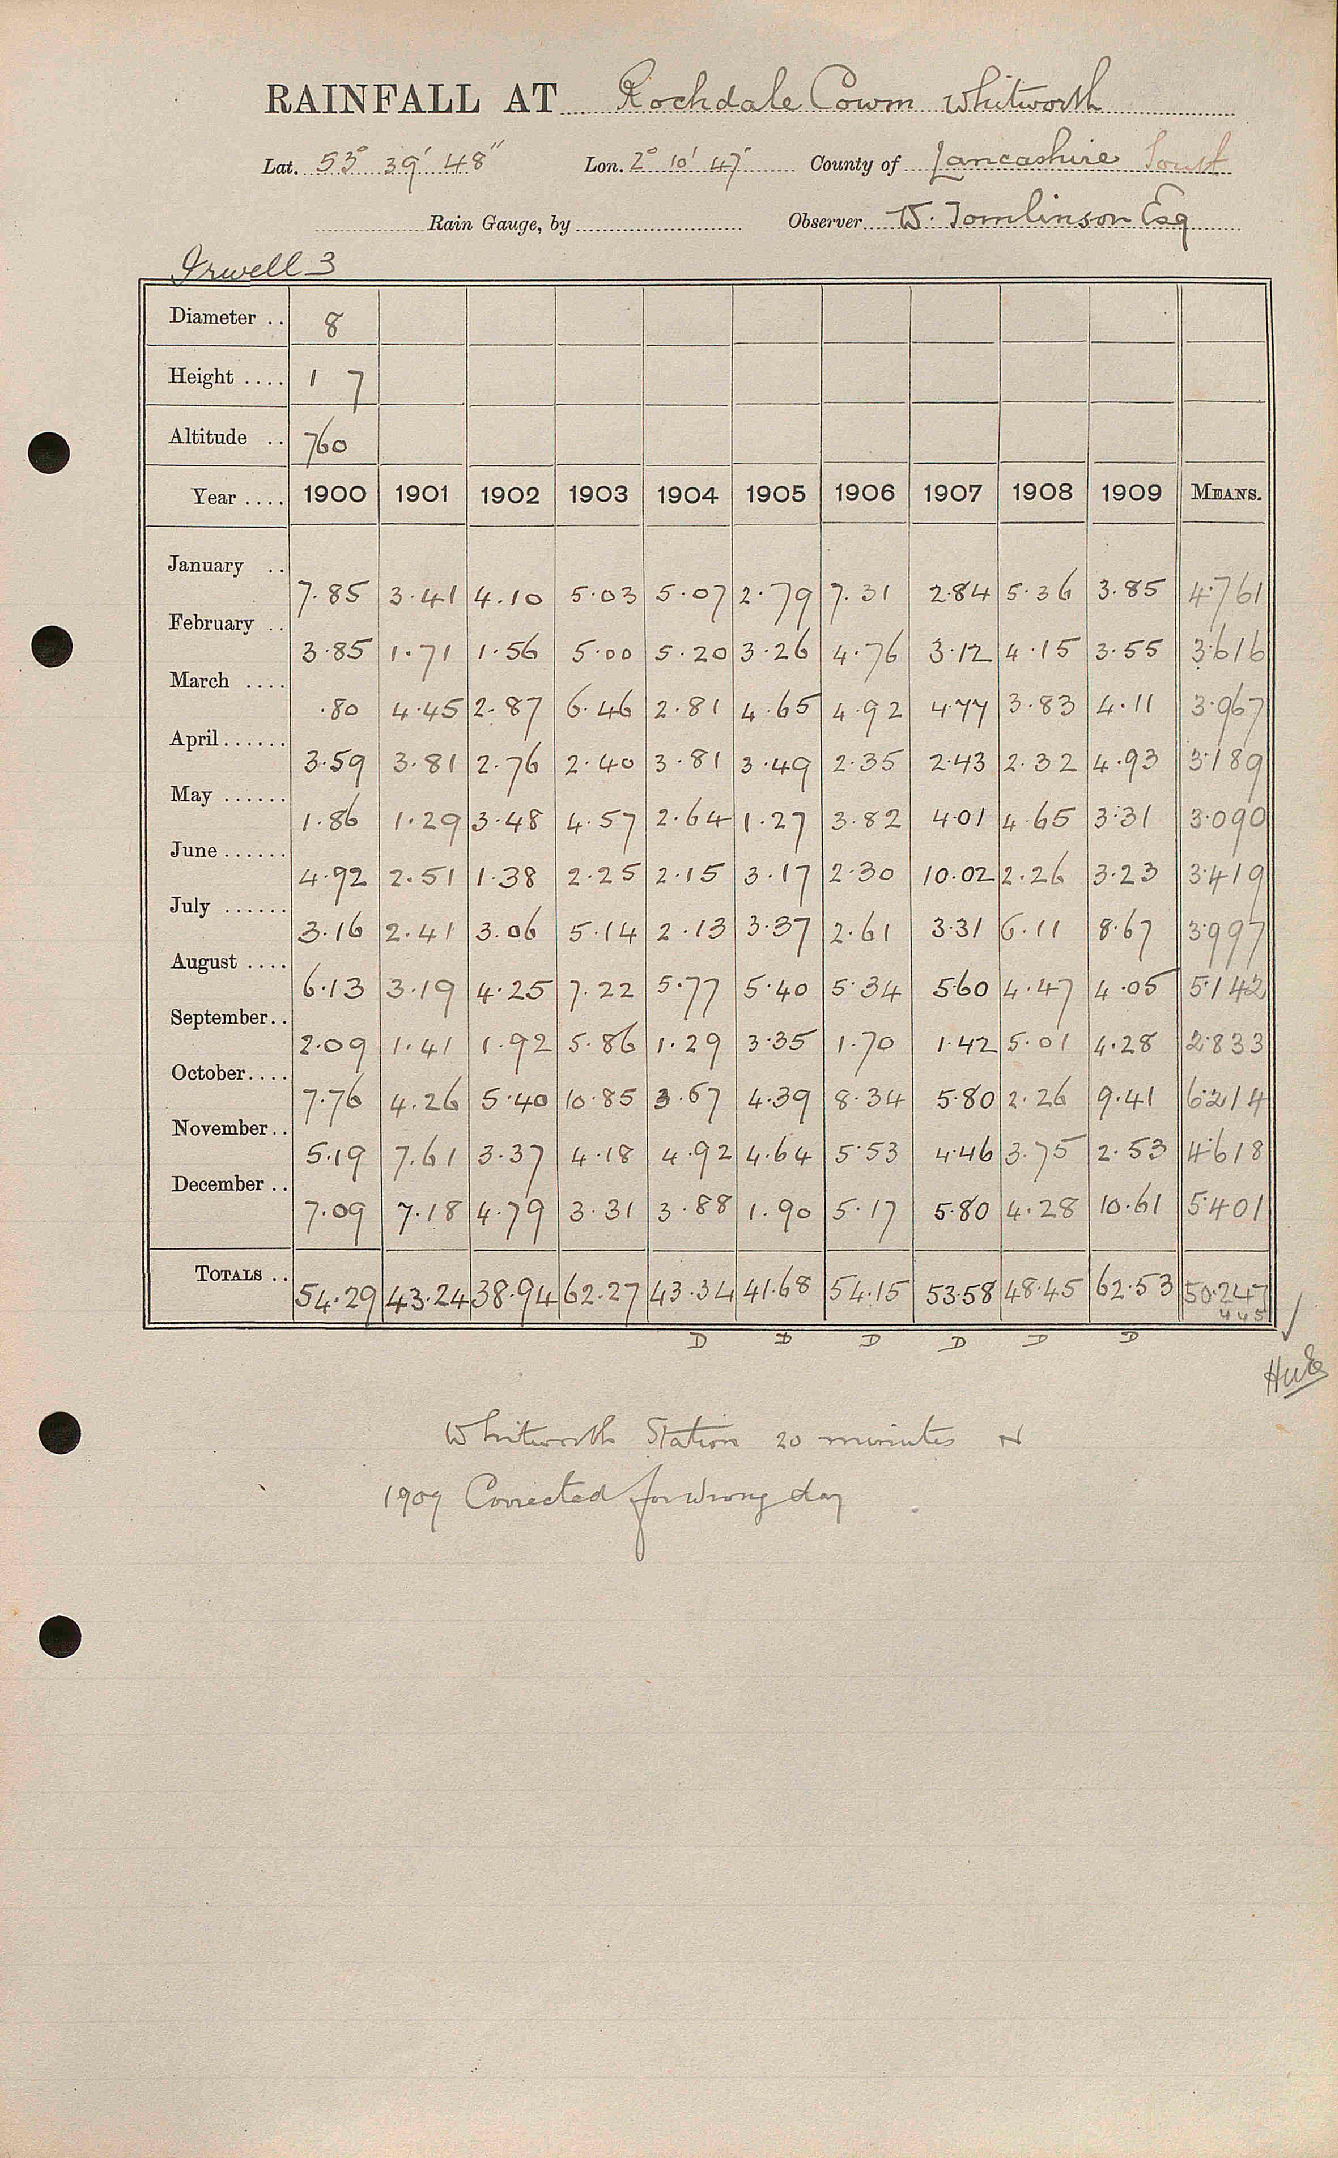 RAINFALL AT Rochdale Cowm Whitworth
Lat. 53° 39' 48" Lon. 2° 10' 47" County of Lancashire South
Rain Gauge, by Observer W. Tomlinson Esq
Irwell 3
Diameter .. 8
Height .... 1 7
Altitude .. 760
Year .... 1900 1901 1902 1903 1904 1905 1906 1907 1908 1909 MEANS.
January .. 7.85 3.41 4.10 5.03 5.07 2.79 7.31 2.84 5.36 3.85 4.761
February .. 3.85 1.71 1.56 5.00 5.20 3.26 4.76 3.12 4.15 3.55 3.616
March .... .80 4.45 2.87 6.46 2.81 4.65 4.92 4.77 3.83 4.11 3.967
April ...... 3.59 3.81 2.76 2.40 3.81 3.49 2.35 2.43 2.32 4.93 3.189
May ...... 1.86 1.29 3.48 4.57 2.64 1.27 3.82 4.01 4.65 3.31 3.090
June ...... 4.92 2.51 1.38 2.25 2.15 3.17 2.30 10.02 2.26 3.23 3.419
July ...... 3.16 2.41 3.06 5.14 2.13 3.37 2.61 3.31 6.11 8.67 3.997
August .... 6.13 3.19 4.25 7.22 5.77 5.40 5.34 5.60 4.47 4.05 5.142
September.. 2.09 1.41 1.92 5.86 1.29 3.35 1.70 1.42 5.01 4.28 2.833
October.... 7.76 4.26 5.40 10.85 3.67 4.39 8.34 5.80 2.26 9.41 6.214
November.. 5.19 7.61 3.37 4.18 4.92 4.64 5.53 4.46 3.75 2.53 4.618
December .. 7.09 7.18 4.79 3.31 3.88 1.90 5.17 5.80 4.28 10.61 5.401
TOTALS .. 54.29 43.24 38.94 62.27 43.34 41.68 54.15 53.58 48.45 62.53 50.247
445
D D D D D D
Whitworth Station 20 minutes N
1907 Corrected for wrong day